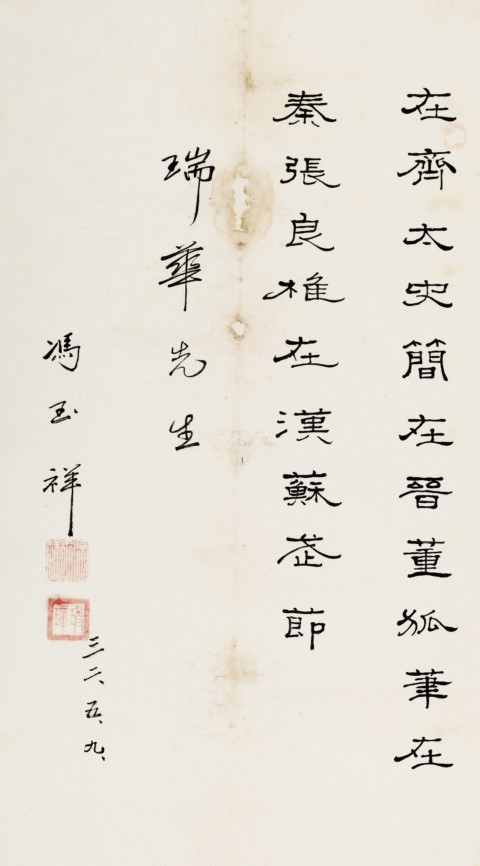 在齊太史簡在晉董狐筆在
秦張良椎在漢蘇武節
瑞華先生
馮玉祥
三二、五、九、